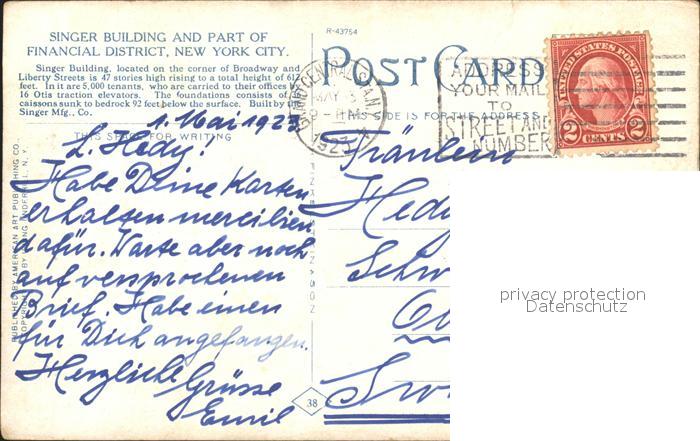 SINGER BUILDING AND PART OF
FINANCIAL DISTRICT, NEW YORK CITY.
Singer Building, located on the corner of Broadway and
Liberty Streets is 47 stories high rising to a total height of 612
feet. In it are 5,000 tenants, who are carried to their offices by
16 Otis traction elevators. The foundations consists of
caissons sunk to bedrock 92 feet below the surface. Built by the
Singer Mfg., Co.
R-43754
POST CARD
THIS SPACE FOR WRITING
THIS SIDE IS FOR THE ADDRESS
GRAND CENTRAL STA.
MAY
1923
ADDRESS
YOUR MAIL
TO
STREET AND
NUMBER
UNITED STATES POSTAGE
2 CENTS 2
1. Mai 1923
L. Hedy!
Habe Deine Karten
erhalten mercilien
dafür. Warte aber noch
auf versprochenen
Brief. Habe einen
für Dich angefangen.
Herzliche Grüsse
Emil
Fräulein
Hedi
Schw
Swi
38
PUBLISHED BY AMERICAN ART PUBLISHING CO.
privacy protection
Datenschutz